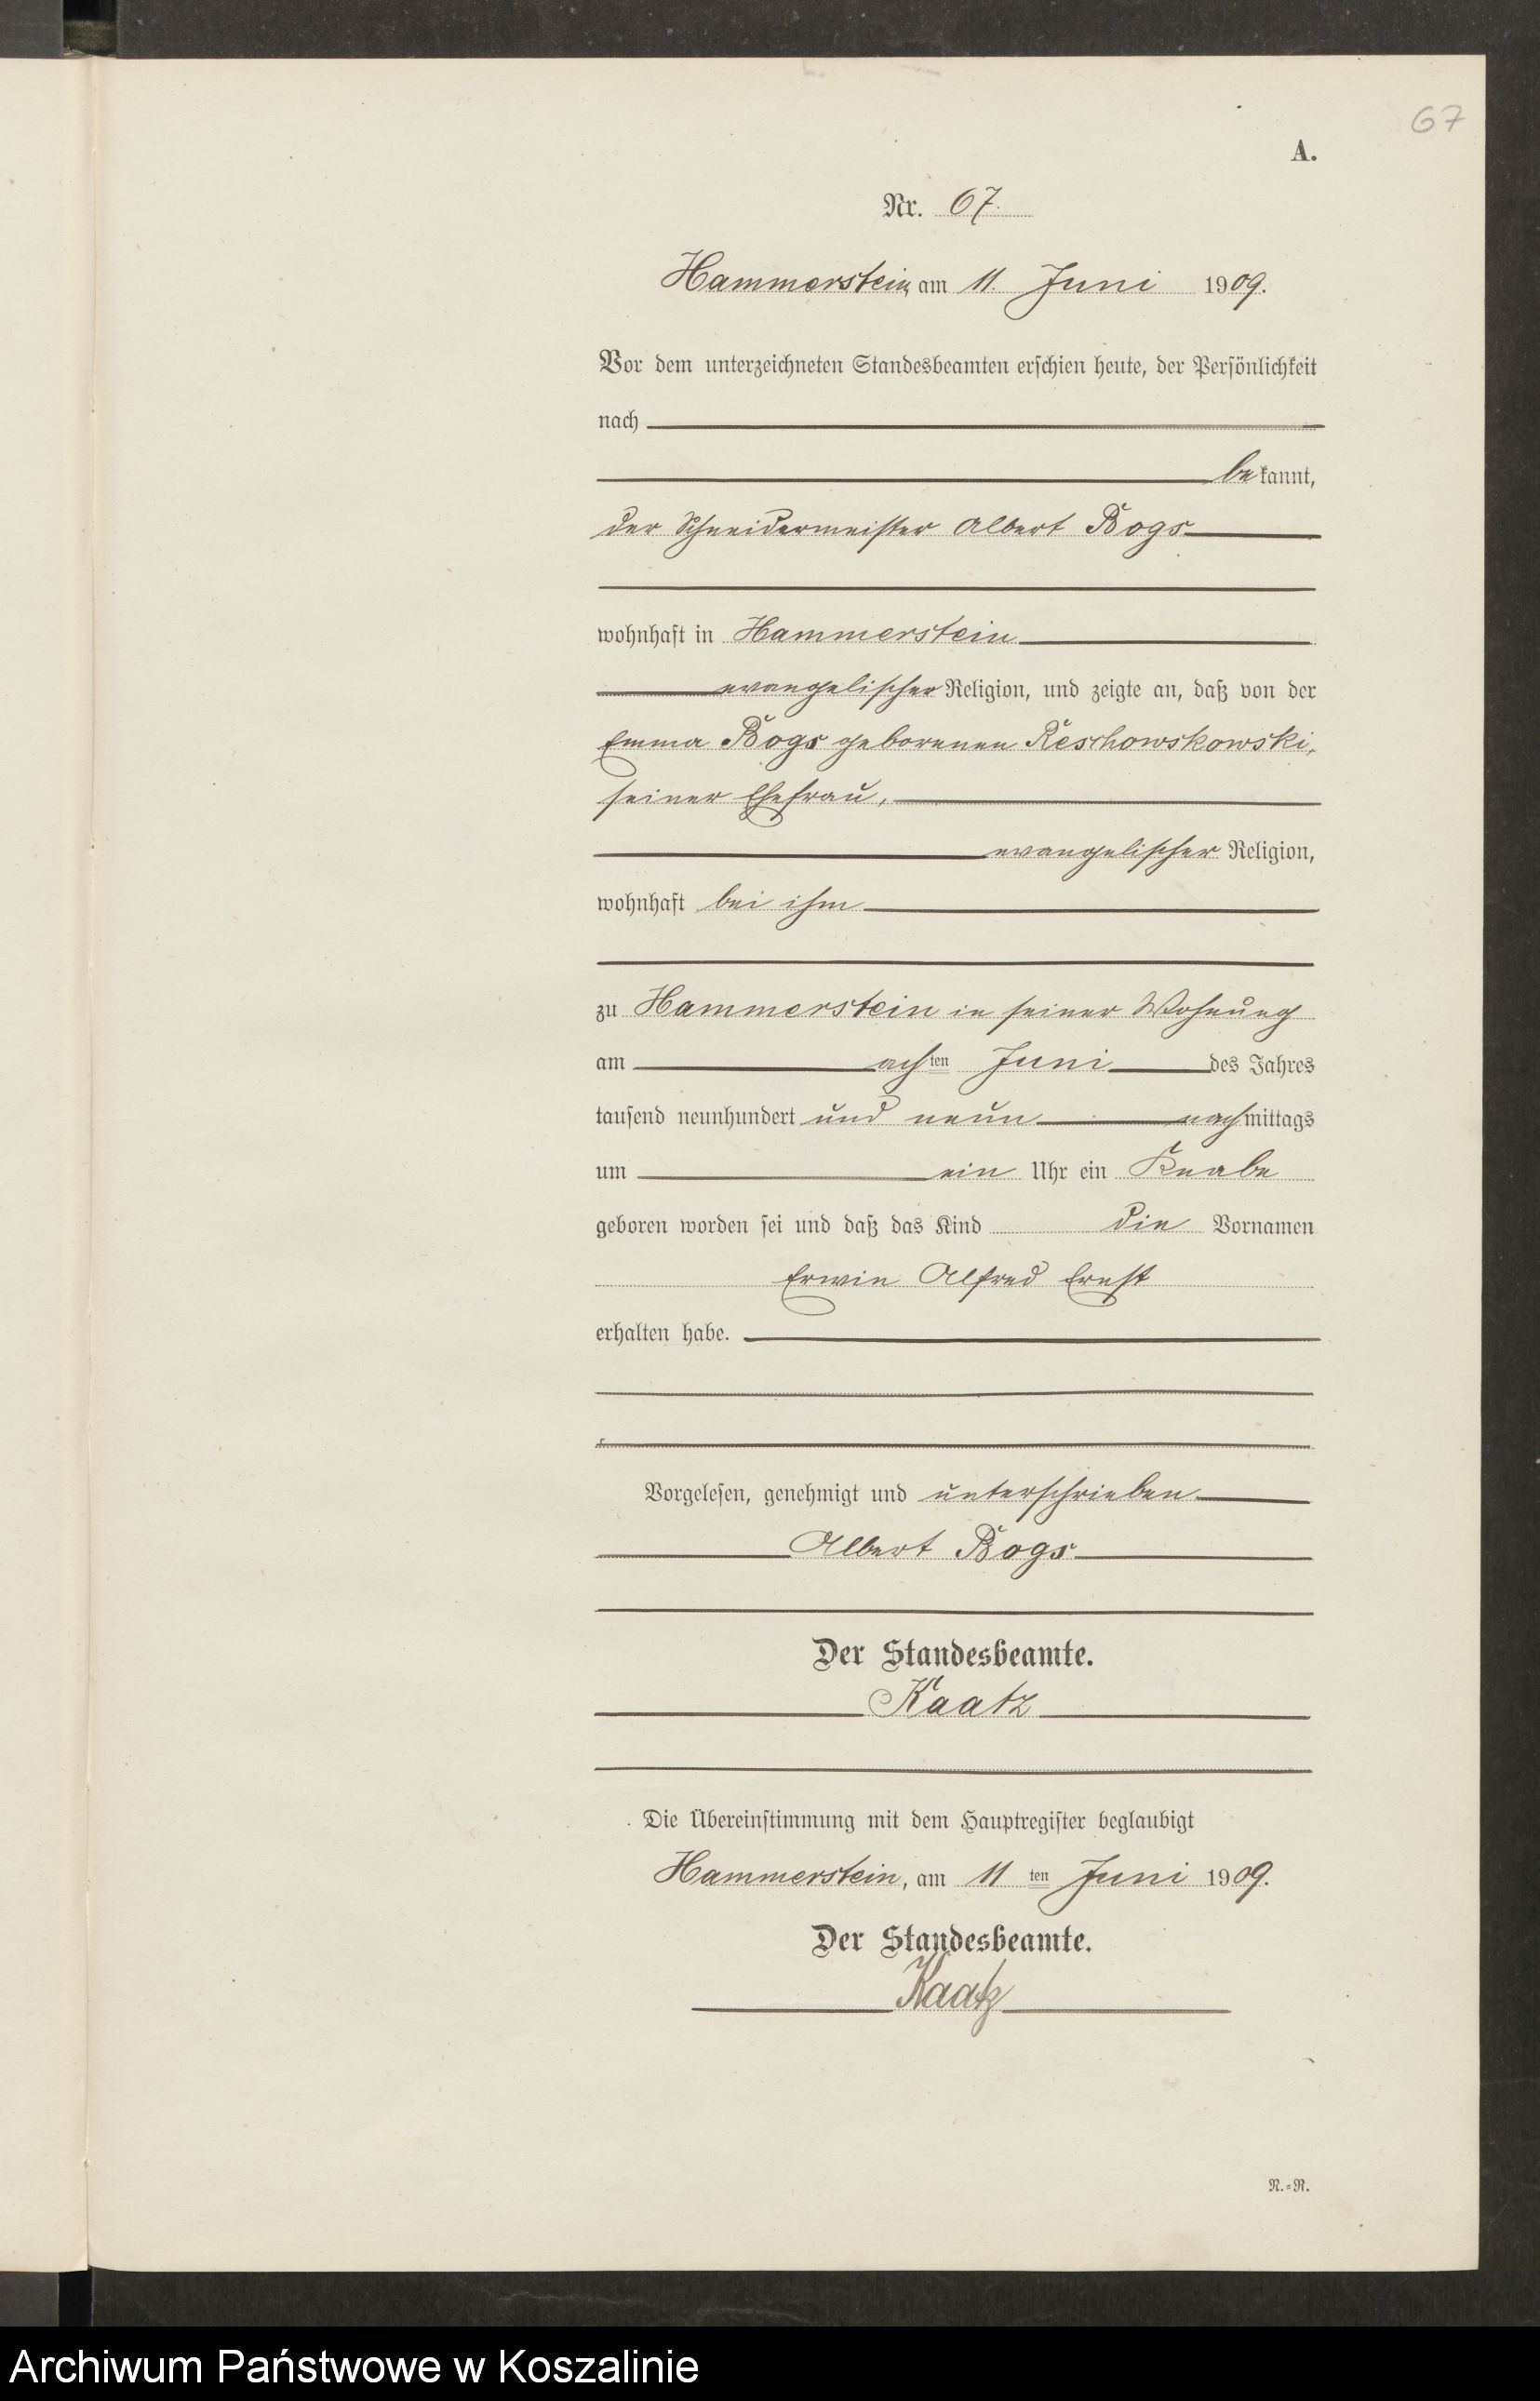 67
A.
Nr. 67.
Hammerstein, am 11. Juni 1909.
Vor dem unterzeichneten Standesbeamten erschien heute, der Persönlichkeit
nach
bekannt,
der Schneidermeister Albert Bogs
wohnhaft in Hammerstein
evangelischer Religion, und zeigte an, daß von der
Emma Bogs geborenen Reschowskowski,
seiner Ehefrau,
evangelischer Religion,
wohnhaft bei ihm
zu Hammerstein in seiner Wohnung
am achten Juni des Jahres
tausend neunhundert und neun nachmittags
um ein Uhr ein Knabe
geboren worden sei und daß das Kind die Vornamen
Erwin Alfred Ernst
erhalten habe.
Vorgelesen, genehmigt und unterschrieben
Albert Bogs
Der Standesbeamte.
Kaatz
Die Übereinstimmung mit dem Hauptregister beglaubigt
Hammerstein, am 11ten Juni 1909.
Der Standesbeamte.
Kaatz
N.=R.
Archiwum Państwowe w Koszalinie